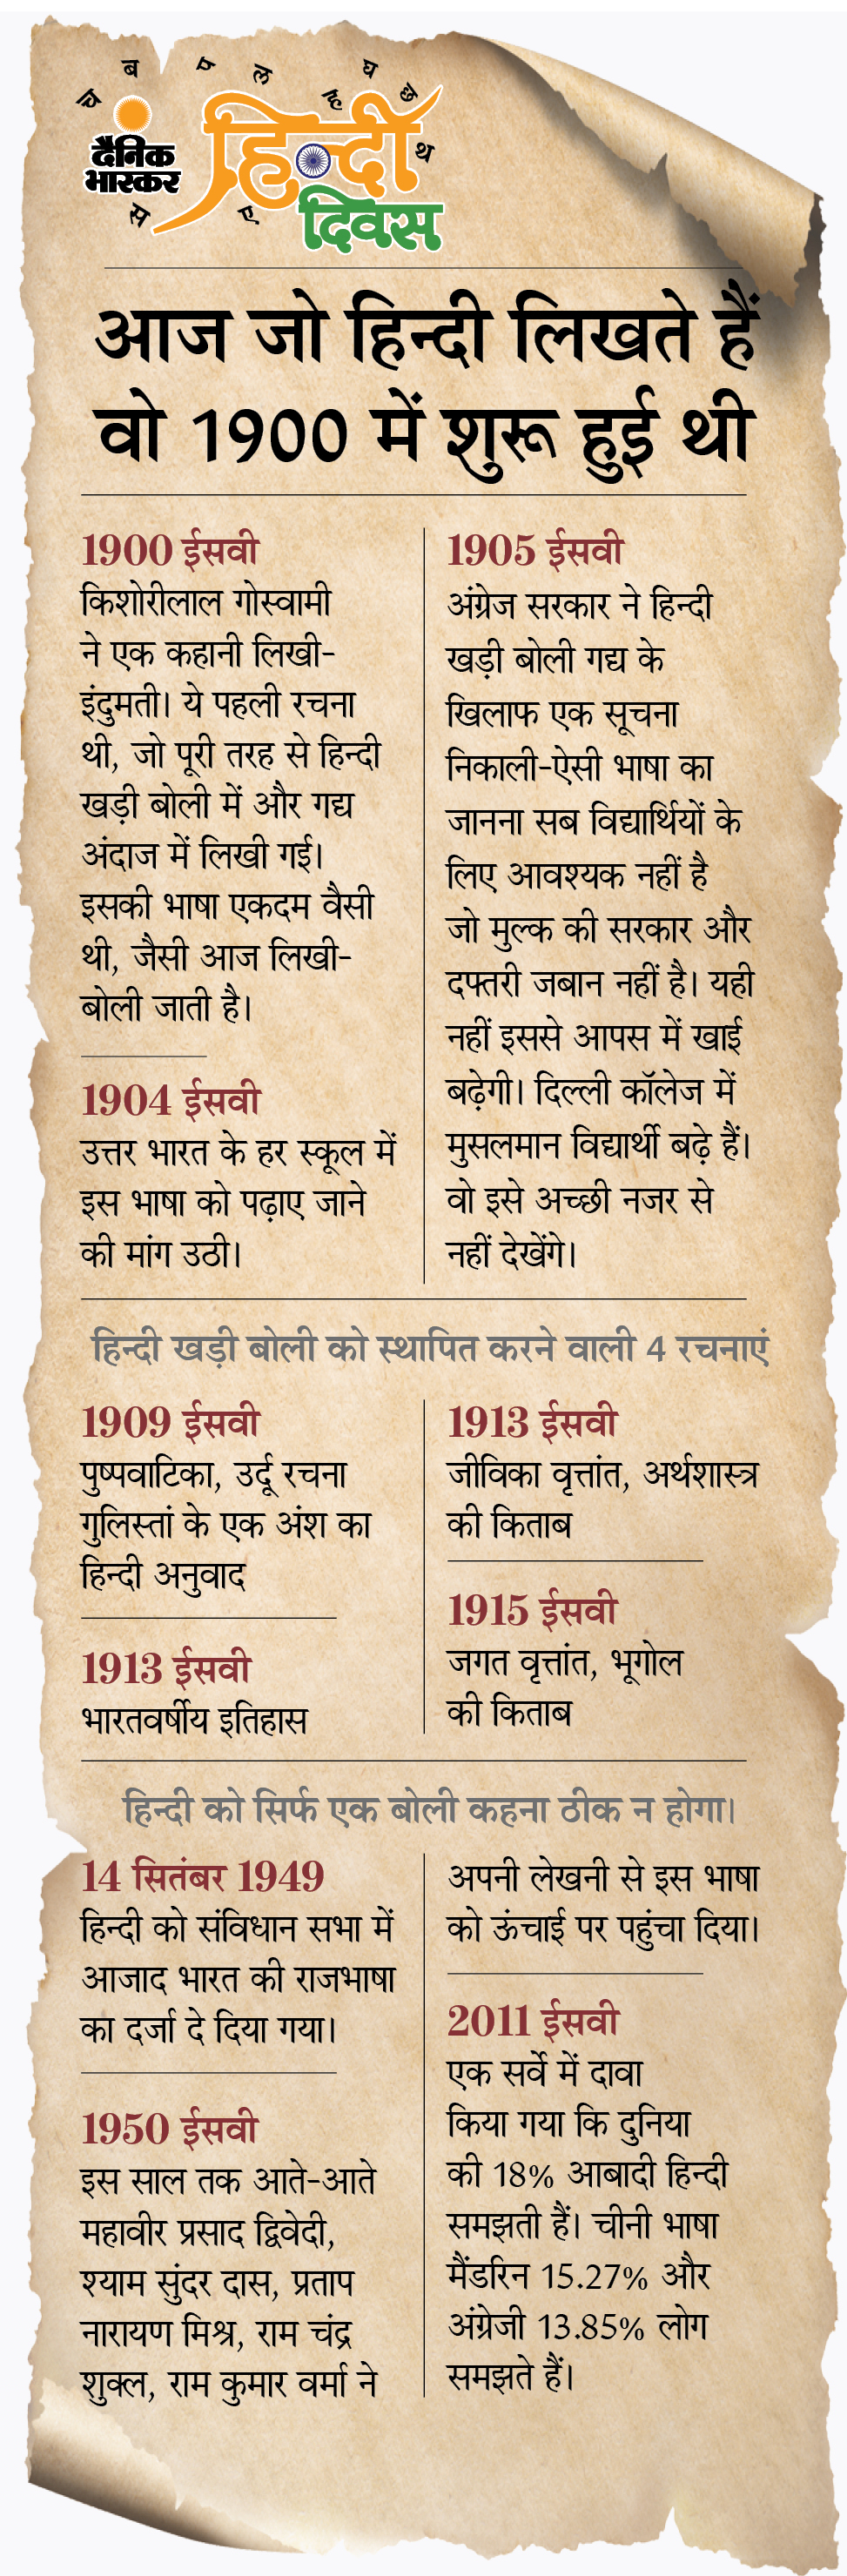 च
ब
प
ल
घ
ह
छ
थ
स
ए
दैनिक
भास्कर
हिन्दी
दिवस
आज जो हिन्दी लिखते हैं
वो 1900 में शुरू हुई थी
1900 ईसवी
किशोरीलाल गोस्वामी
ने एक कहानी लिखी-
इंदुमती। ये पहली रचना
थी, जो पूरी तरह से हिन्दी
खड़ी बोली में और गद्य
अंदाज में लिखी गई।
इसकी भाषा एकदम वैसी
थी, जैसी आज लिखी-
बोली जाती है।
1904 ईसवी
उत्तर भारत के हर स्कूल में
इस भाषा को पढ़ाए जाने
की मांग उठी।
1905 ईसवी
अंग्रेज सरकार ने हिन्दी
खड़ी बोली गद्य के
खिलाफ एक सूचना
निकाली-ऐसी भाषा का
जानना सब विद्यार्थियों के
लिए आवश्यक नहीं है
जो मुल्क की सरकार और
दफ्तरी जबान नहीं है। यही
नहीं इससे आपस में खाई
बढ़ेगी। दिल्ली कॉलेज में
मुसलमान विद्यार्थी बढ़े हैं।
वो इसे अच्छी नजर से
नहीं देखेंगे।
हिन्दी खड़ी बोली को स्थापित करने वाली 4 रचनाएं
1909 ईसवी
पुष्पवाटिका, उर्दू रचना
गुलिस्तां के एक अंश का
हिन्दी अनुवाद
1913 ईसवी
भारतवर्षीय इतिहास
1913 ईसवी
जीविका वृत्तांत, अर्थशास्त्र
की किताब
1915 ईसवी
जगत वृत्तांत, भूगोल
की किताब
हिन्दी को सिर्फ एक बोली कहना ठीक न होगा।
14 सितंबर 1949
हिन्दी को संविधान सभा में
आजाद भारत की राजभाषा
का दर्जा दे दिया गया।
1950 ईसवी
इस साल तक आते-आते
महावीर प्रसाद द्विवेदी,
श्याम सुंदर दास, प्रताप
नारायण मिश्र, राम चंद्र
शुक्ल, राम कुमार वर्मा ने
अपनी लेखनी से इस भाषा
को ऊंचाई पर पहुंचा दिया।
2011 ईसवी
एक सर्वे में दावा
किया गया कि दुनिया
की 18% आबादी हिन्दी
समझती हैं। चीनी भाषा
मैंडरिन 15.27% और
अंग्रेजी 13.85% लोग
समझते हैं।